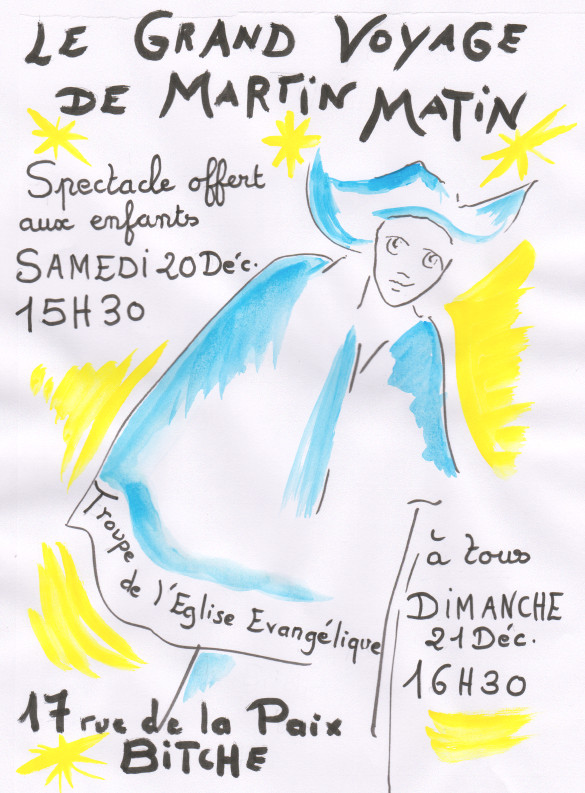 LE GRAND VOYAGE
DE MARTIN MATIN
Spectacle offert
aux enfants
SAMEDI 20 Déc.
15H30
Troupe
de l'Eglise Evangélique
à tous
DIMANCHE
21 Déc.
16H30
17 rue de la Paix
BITCHE